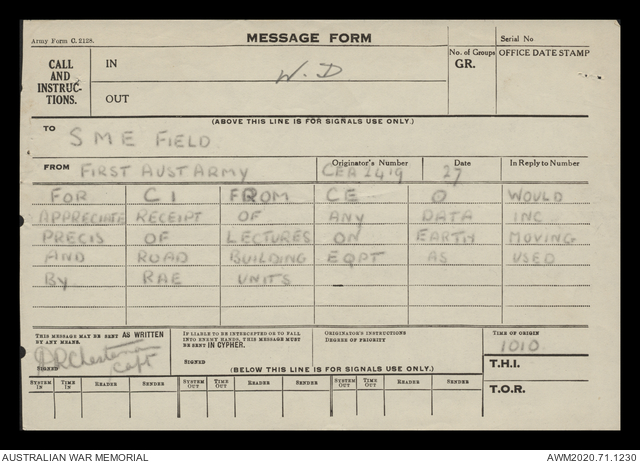 Army Form C. 2128.
MESSAGE FORM
Serial No
CALL AND INSTRUC-TIONS.
IN
W. D
No. of Groups GR.
OFFICE DATE STAMP
OUT
(ABOVE THIS LINE IS FOR SIGNALS USE ONLY.)
TO S M E FIELD
FROM FIRST AUST ARMY
Originator's Number CER 2419
Date 27
In Reply to Number
FOR CI FROM CE O WOULD
APPRECIATE RECEIPT OF ANY DATA INC
PRECIS OF LECTURES ON EARTH MOVING
AND ROAD BUILDING EQPT AS USED
BY RAE UNITS
THIS MESSAGE MAY BE SENT AS WRITTEN BY ANY MEANS.
SIGNED Capt
IF LIABLE TO BE INTERCEPTED OR TO FALL INTO ENEMY HANDS, THIS MESSAGE MUST BE SENT IN CYPHER.
SIGNED
ORIGINATOR'S INSTRUCTIONS DEGREE OF PRIORITY
TIME OF ORIGIN
1010
T.H.I.
(BELOW THIS LINE IS FOR SIGNALS USE ONLY.)
SYSTEM IN TIME IN READER SENDER SYSTEM OUT TIME OUT READER SENDER SYSTEM OUT TIME OUT READER SENDER
T.O.R.
AUSTRALIAN WAR MEMORIAL
AWM2020.71.1230